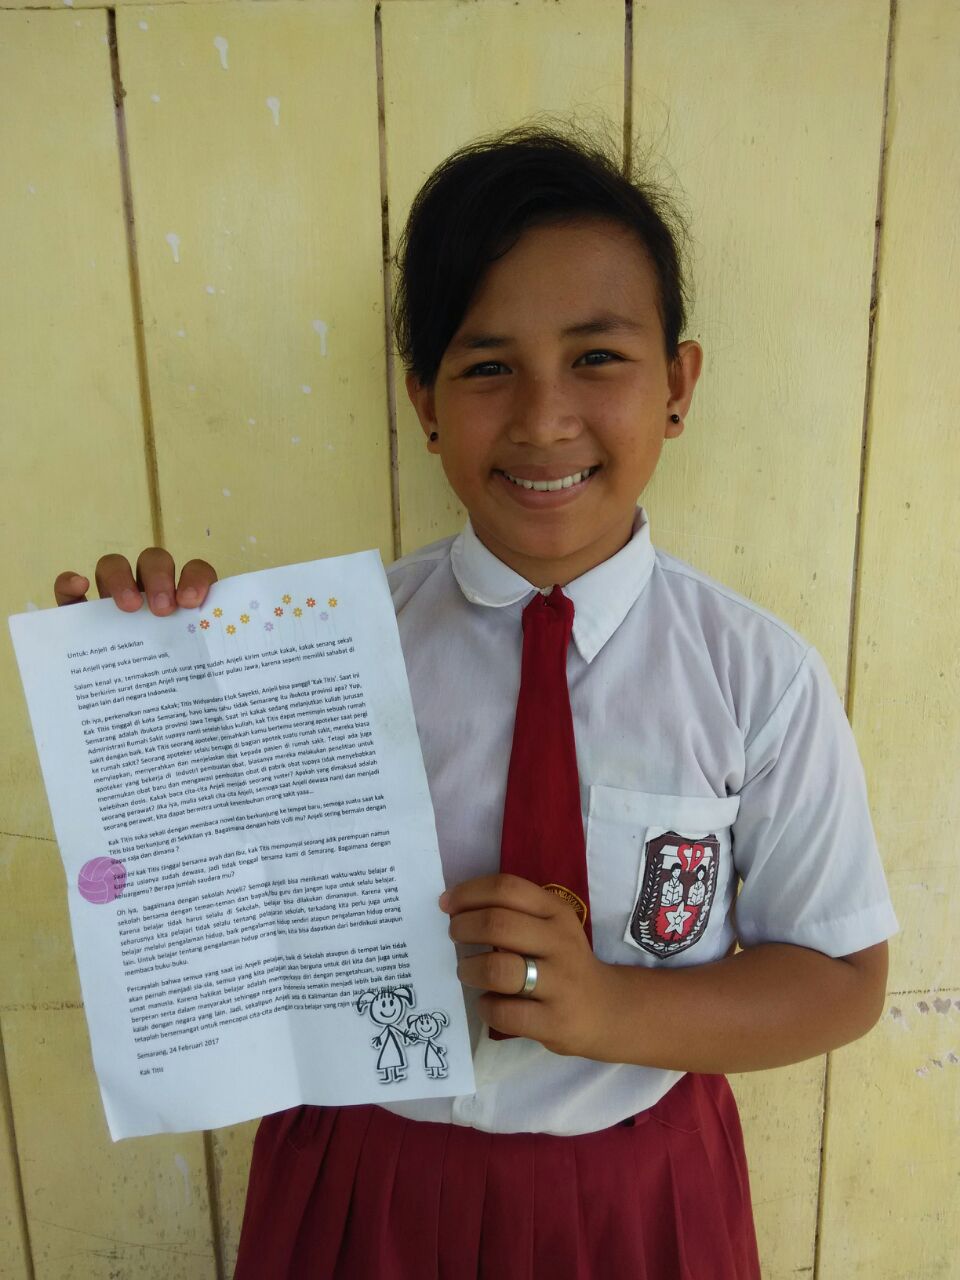 Untuk: Anjeli di Sekikilan
Hai Anjeli yang suka bermain voli,
Salam kenal ya, terimakasih untuk surat yang sudah Anjeli kirim untuk kakak, kakak senang sekali
bisa berkirim surat dengan Anjeli yang tinggal di luar pulau Jawa, karena seperti memiliki sahabat di
bagian lain dari negara Indonesia.
Oh iya, perkenalkan nama Kakak; Titis Withandara Elok Sayekti, Anjeli bisa panggil 'Kak Titis'. Saat ini
Kak Titis tinggal di kota Semarang, hayo kamu tahu tidak Semarang itu ibukota provinsi apa? Yup,
Semarang adalah ibukota provinsi Jawa Tengah. Saat ini kakak sedang melanjutkan kuliah jurusan
Administrasi Rumah Sakit supaya nanti setelah lulus kuliah, kak Titis dapat memimpin sebuah rumah
sakit dengan baik. Kak Titis seorang apoteker, pernahkah kamu bertemu seorang apoteker saat pergi
ke rumah sakit? Seorang apoteker selalu bertugas di bagian apotek suatu rumah sakit, mereka biasa
menyiapkan, menyerahkan dan menjelaskan obat kepada pasien di rumah sakit. Tetapi ada juga
apoteker yang bekerja di industri pembuatan obat, biasanya mereka melakukan penelitian untuk
menemukan obat baru dan mengawasi pembuatan obat di pabrik obat supaya tidak menyebabkan
kelebihan dosis. Kakak baca cita-cita Anjeli menjadi seorang suster? Apakah yang dimaksud adalah
seorang perawat? Jika iya, mulia sekali cita-cita Anjeli, semoga saat Anjeli dewasa nanti dan menjadi
seorang perawat, kita dapat bermitra untuk kesembuhan orang sakit yaaa...
Kak Titis suka sekali dengan membaca novel dan berkunjung ke tempat baru, semoga suatu saat kak
Titis bisa berkunjung di Sekikilan ya. Bagaimana dengan hobi Volli mu? Anjeli sering bermain dengan
siapa saja dan dimana ?
Saat ini kak Titis tinggal bersama ayah dan ibu, kak Titis mempunyai seorang adik perempuan namun
karena usianya sudah dewasa, jadi tidak tinggal bersama kami di Semarang. Bagaimana dengan
keluargamu? Berapa jumlah saudara mu?
Oh iya, bagaimana dengan sekolah Anjeli? Semoga Anjeli bisa menikmati waktu-waktu belajar di
sekolah bersama dengan teman-teman dan bapak/bu guru dan jangan lupa untuk selalu belajar.
Karena belajar tidak harus selalu di Sekolah, belajar bisa dilakukan dimanapun. Karena yang
seharusnya kita pelajari tidak selalu tentang pelajaran sekolah, terkadang kita perlu juga untuk
belajar melalui pengalaman hidup, baik pengalaman hidup sendiri atupun pengalaman hidup orang
lain. Untuk belajar tentang pengalaman hidup orang lain, kita bisa dapatkan dari berdiskusi ataupun
membaca buku-buku.
Percayalah bahwa semua yang saat ini Anjeli pelajari, baik di Sekolah ataupun di tempat lain tidak
akan pernah menjadi sia-sia, semua yang kita pelajari akan berguna untuk diri kita dan juga untuk
umat manusia. Karena hakikat belajar adalah memperkaya diri dengan pengetahuan, supaya bisa
berperan serta dalam masyarakat sehingga negara Indonesia semakin menjadi lebih baik dan tidak
kalah dengan negara yang lain. Jadi, sekalipun Anjeli ada di Kalimantan dan jauh dari pulau Jawa
tetaplah bersemangat untuk mencapai cita-cita dengan cara belajar yang rajin
Semarang, 24 Februari 2017
Kak Titis
SD